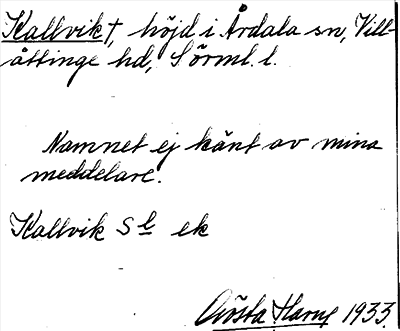 Kallvik †, höjd i Årdala sn, Vill-
åttinge hd, Sörml. l.
Namnet ej känt av mina
meddelare.
Kallvik Sb ek
Gösta Harng 1933.